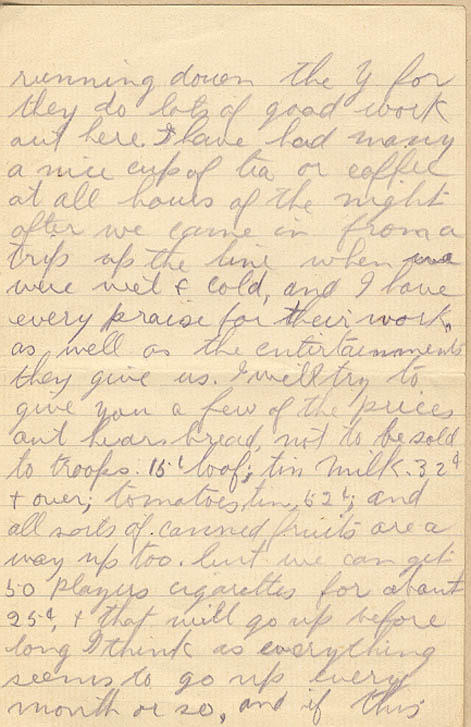 running down the Y for
they do lots of good work
out here. I have had many
a nice cup of tea or coffee
at all hours of the night
after we came in from a
trip up the line when we
were wet & cold, and I have
every praise for their work,
as well as the entertainments
they give us. I will try to
give you a few of the prices
out hear. bread, not to be sold
to troops. 15¢ loaf; tin milk. 32¢
& over; tomatoes tin, 52¢; and
all sorts of canned fruits are a
way up too. but we can get
50 players cigarettes for about
25¢, & that will go up before
long I think as everything
seems to go up every
month or so, and if this